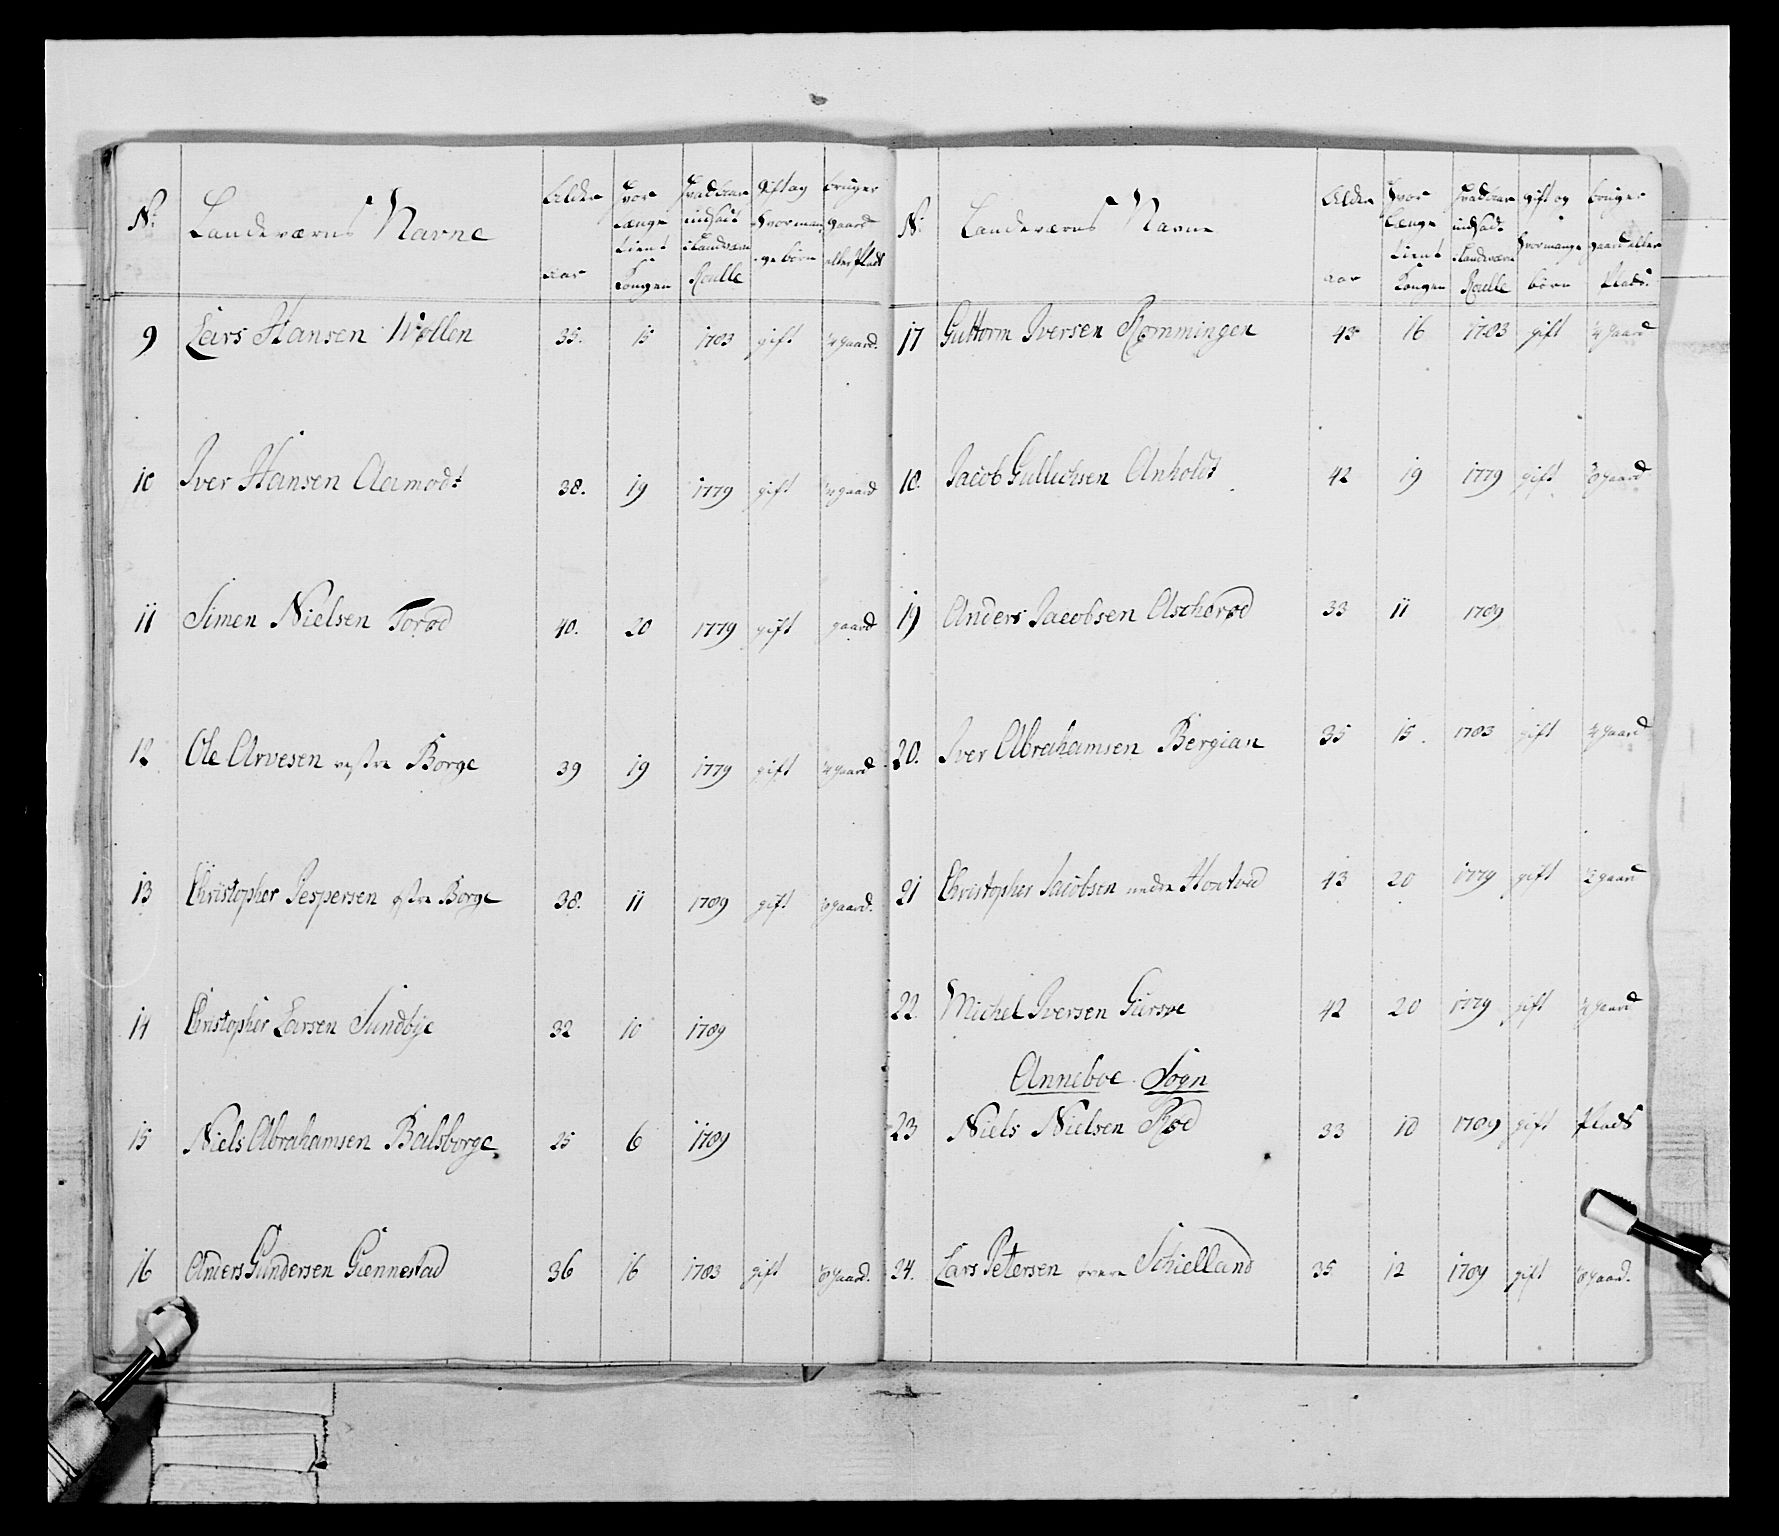 No. Landeværns Navne Alder Aar Hvor Længe tient Kongen Hvad Aar indsadt i Landværns Roulle Gift og Hvor mange børn bruger gaard eller Plads
9 Lars Hansen Wollen 35. 15 1783 gift 1/4 gaard.
10 Iver Hansen Aamodt 38. 19 1779 gift gaard
11 Simen Nielsen Torød 40. 20 1779 gift gaard
12 Ole Arvesen vestre Borge 39 19 1779 gift 1/4 gaard
13 Christopher Jespersen østre Borge 38. 11 1789 gift gaard.
14 Christopher Larsen Sundbye 32 10 1789
15 Niels Abrahamsen Balsborge 25 6 1789
16 Anders Gundersen Giennestad 36 16 1783 gift 1/8 gaard.
No. Landeværns Navne Alder Aar Hvor Længe tient Kongen Hvad Aar indsadt i Landværns Roulle gift og Hvor mange børn bruger gaard eller Plads.
17 Guttorm Iversen Rømmingen 43 16 1783 gift 1/4 gaard
18. Jacob Gullichsen Anholdt 42 19 1779 gift gaard
19 Anders Jacobsen Ascherød 33 11 1789
20. Iver Abrahamsen Bergian 35 15. 1783 gift 1/4 gaard
21 Christopher Jacobsen nedre Hontved 43 20 1779 gift 1/2 gaard
22. Michel Iversen Giersøe 42 20 1779 gift gaard
Anneboe Sogn
23 Niels Nielsen Røed 33 10 1789 gift Plads
24. Lars Petersen øvre Schielland 35 12 1789 gift 1/8 gaard.